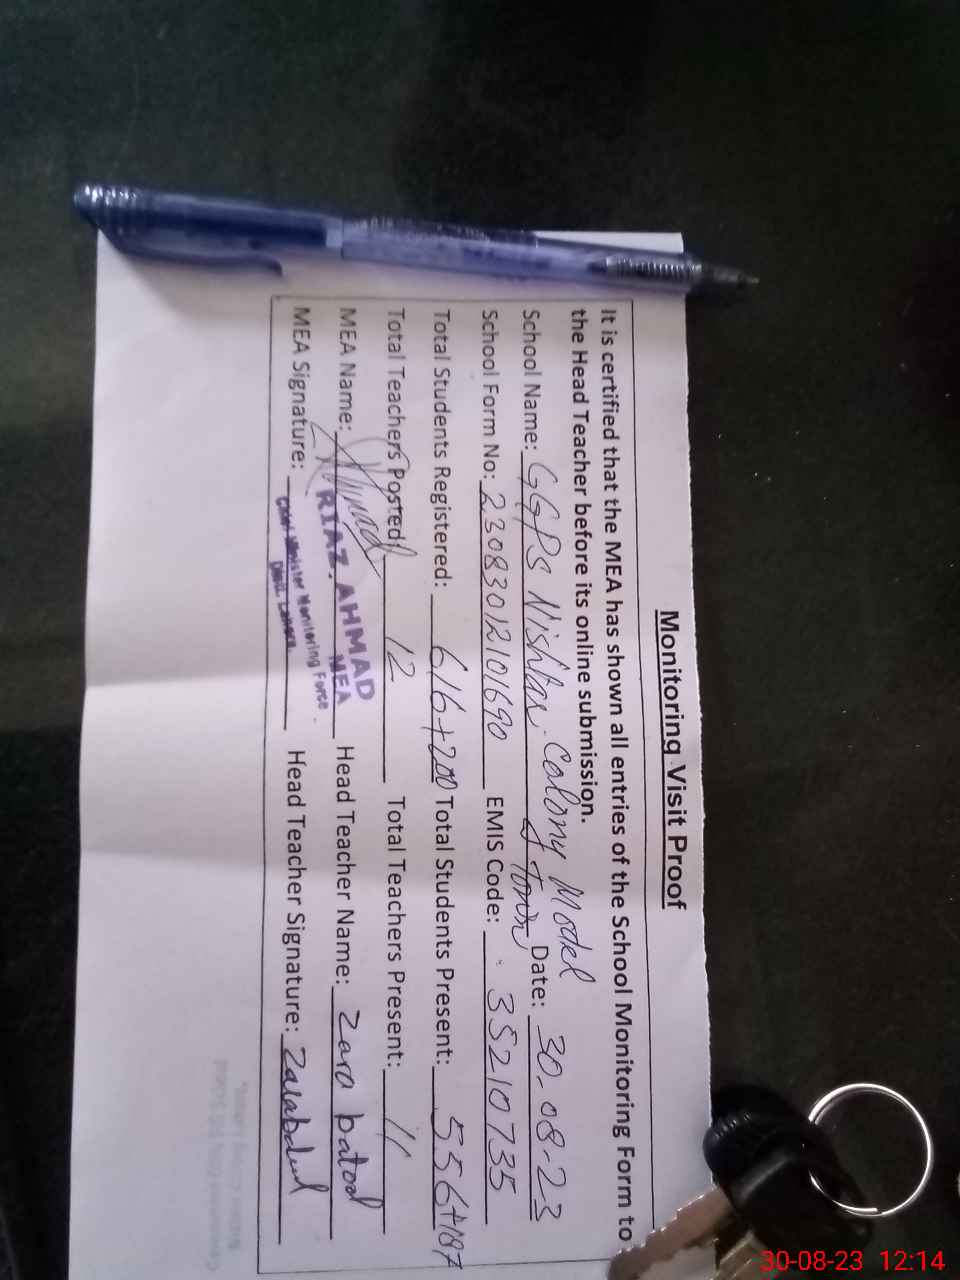 Monitoring Visit Proof
It is certified that the MEA has shown all entries of the School Monitoring Form to
the Head Teacher before its online submission.
School Name: GGPS Nishtar Colony Model Town Date: 30-08-23
School Form No: 23083012101690 EMIS Code: 35210735
Total Students Registered: 616+200 Total Students Present: 556+187
Total Teachers Posted: 12 Total Teachers Present: 11
MEA Name: RIAZ. AHMAD Head Teacher Name: Zaro batool
MEA
MEA Signature: Chief Minister Monitoring Force. Head Teacher Signature:
Distt. Lahore.
30-08-23 12:14